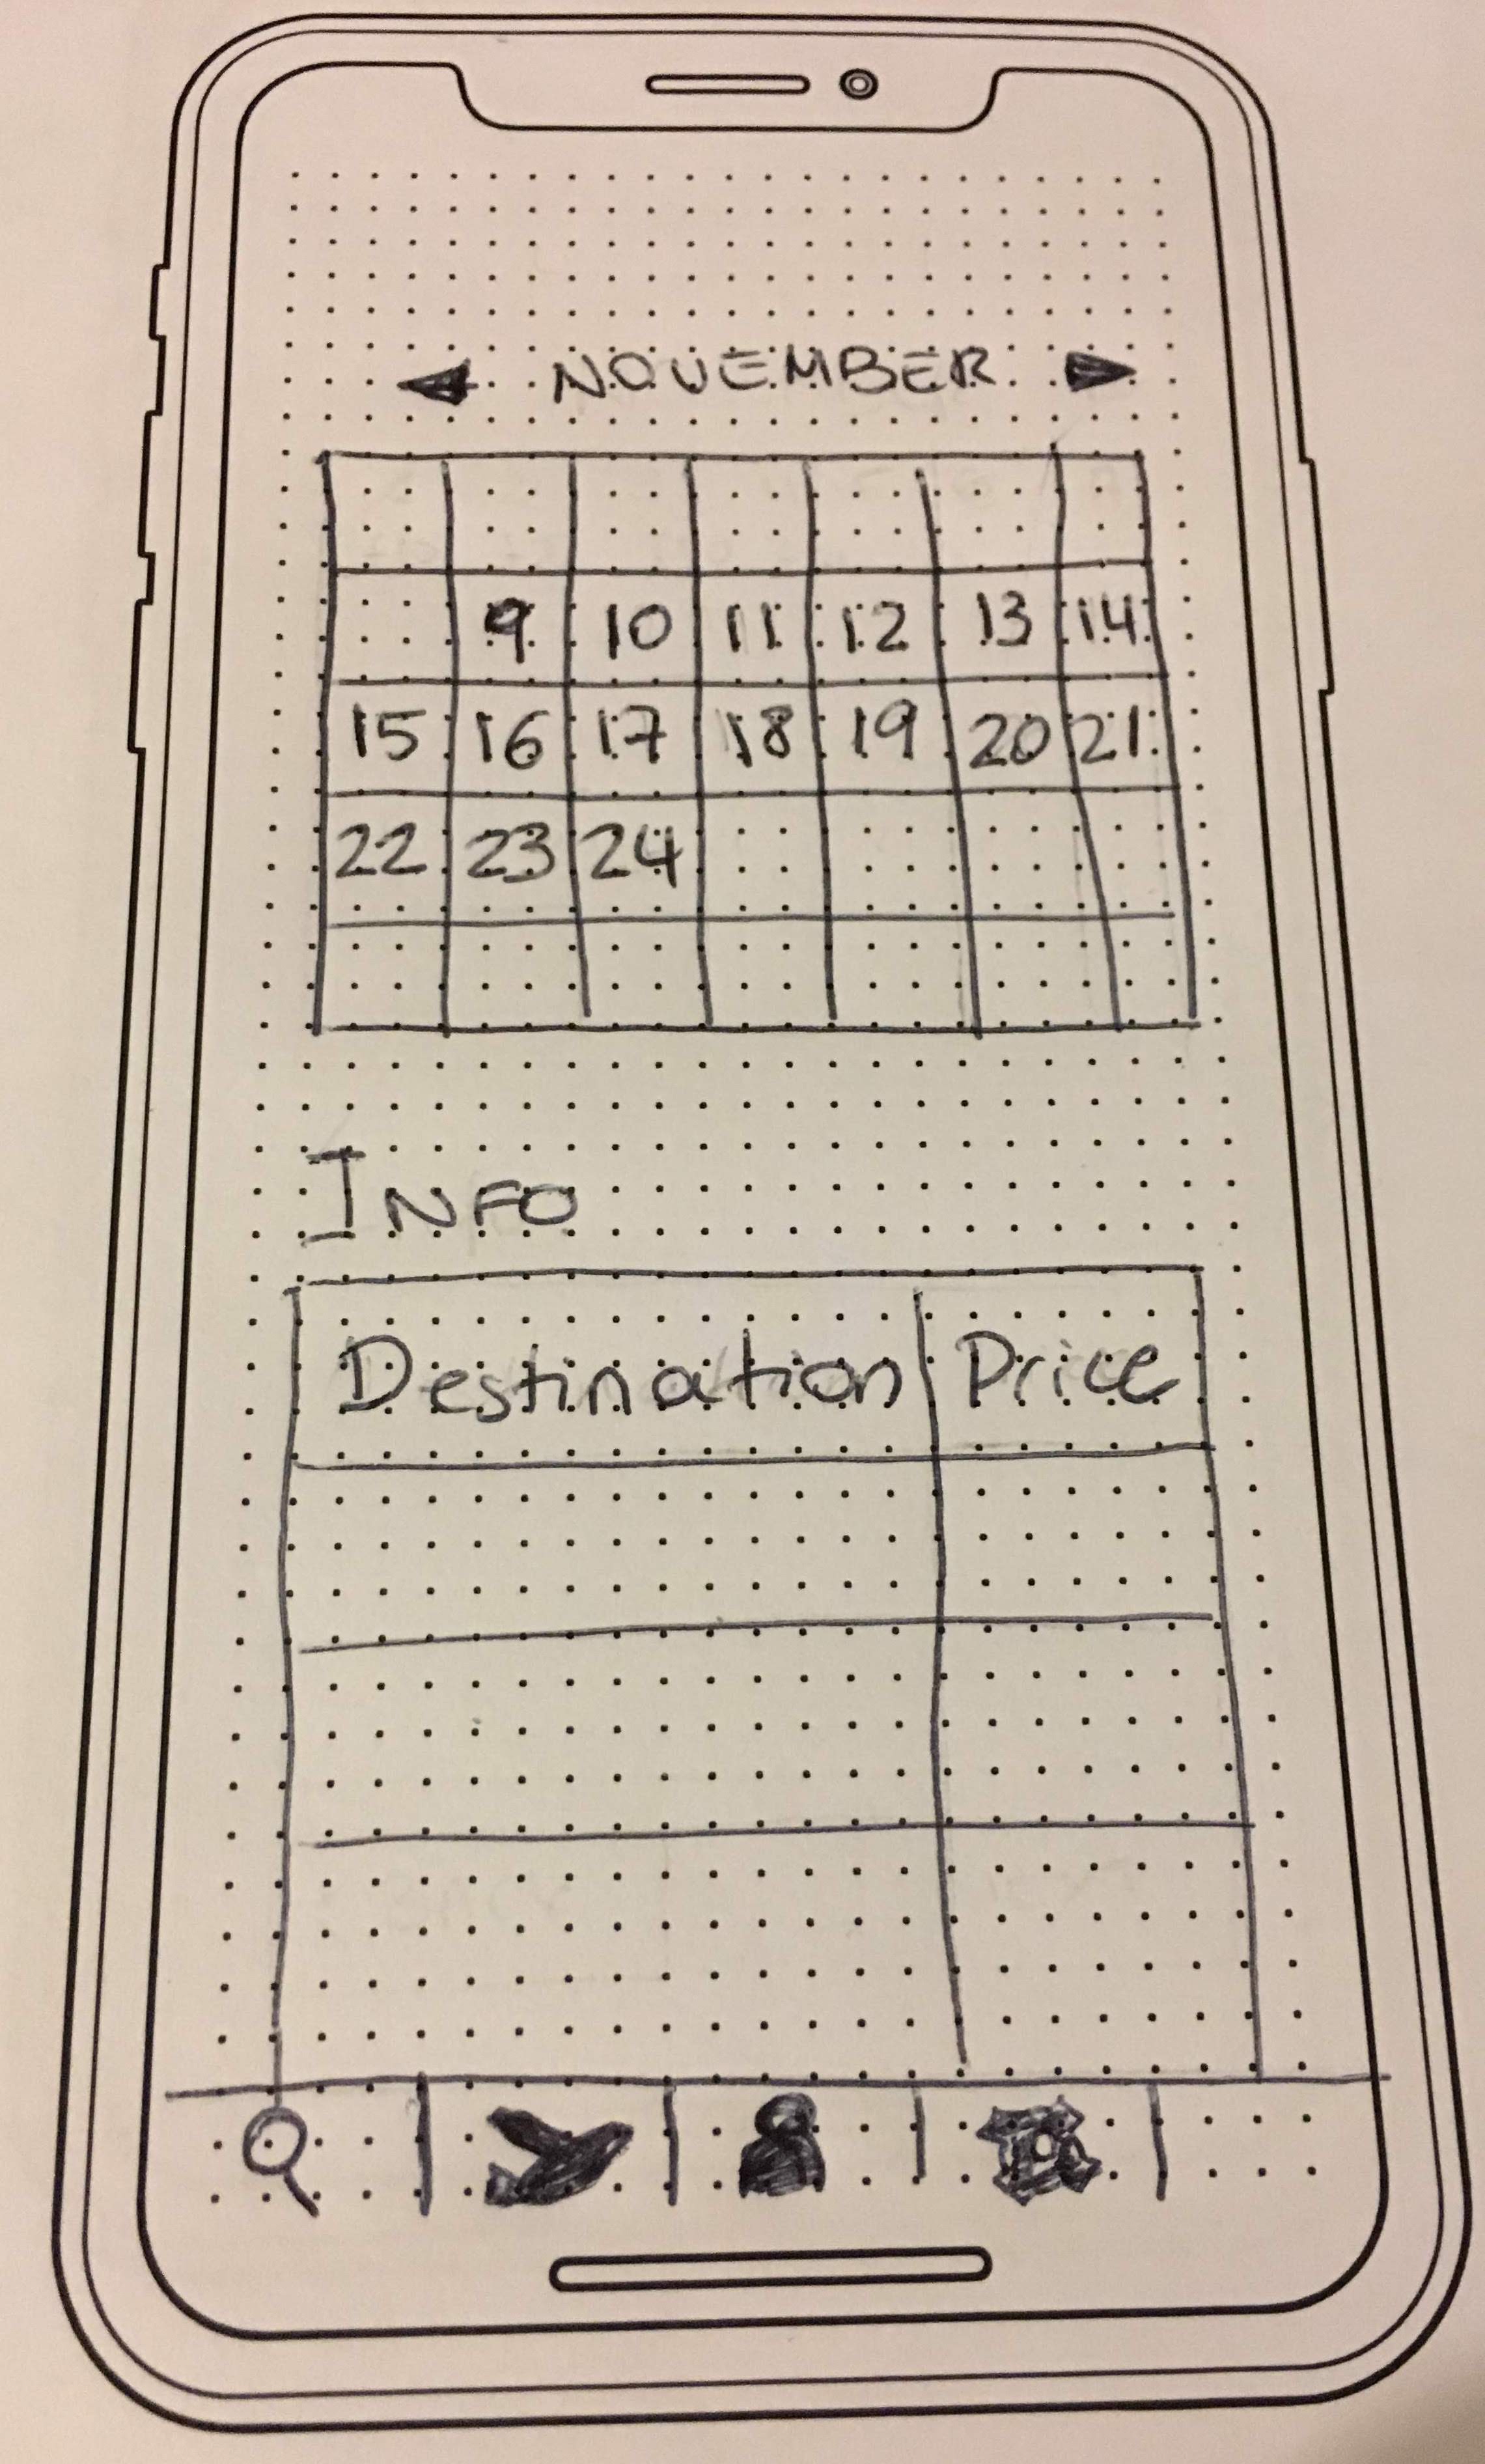 NOVEMBER
9 10 11 12 13 14
15 16 17 18 19 20 21
22 23 24
INFO
Destination Price